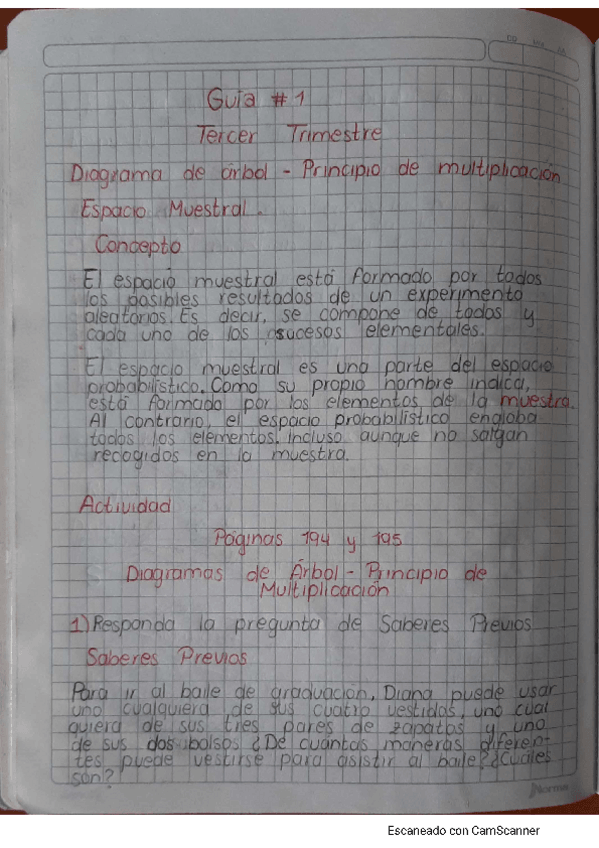 Guia # 1
Tercer Trimestre
Diagrama de árbol - Principio de multiplicación
Espacio Muestral.
Concepto
El espacio muestral está formado por todos
los posibles resultados de un experimento
aleatorios. Es decir, se compone de todos y
cada uno de los sucesos elementales.
El espacio muestral es una parte del espacio
probabilístico. Como su propio nombre indica,
está formado por los elementos de la muestra.
Al contrario, el espacio probabilístico engloba
todos los elementos. Incluso aunque no salgan
recogidos en la muestra.
Actividad
Páginas 194 y 195
Diagramas de Árbol - Principio de
Multiplicación
1) Responda la pregunta de Saberes Previos
Saberes Previos
Para ir al baile de graduación, Diana puede usar
uno cualquiera de sus cuatro vestidos, uno cual
quiera de sus tres pares de zapatos y uno
de sus dos bolsos ¿De cuantas maneras diferen
tes puede vestirse para asistir al baile? ¿Cuáles
son?
Norma
Escaneado con CamScanner